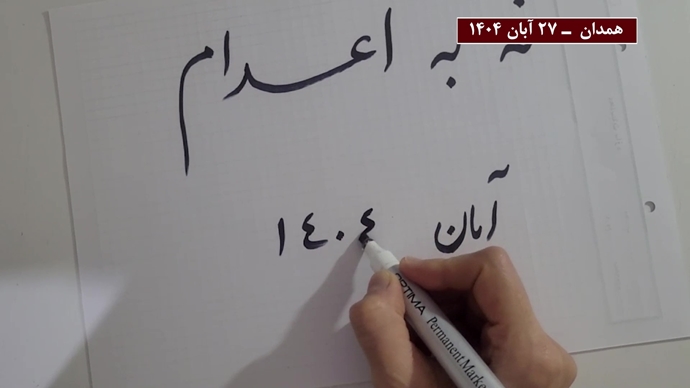 همدان – ۲۷ آبان ۱۴۰۴
نه به اعدام
آبان ۱۴۰۴
OPTIMA Permanent Marke